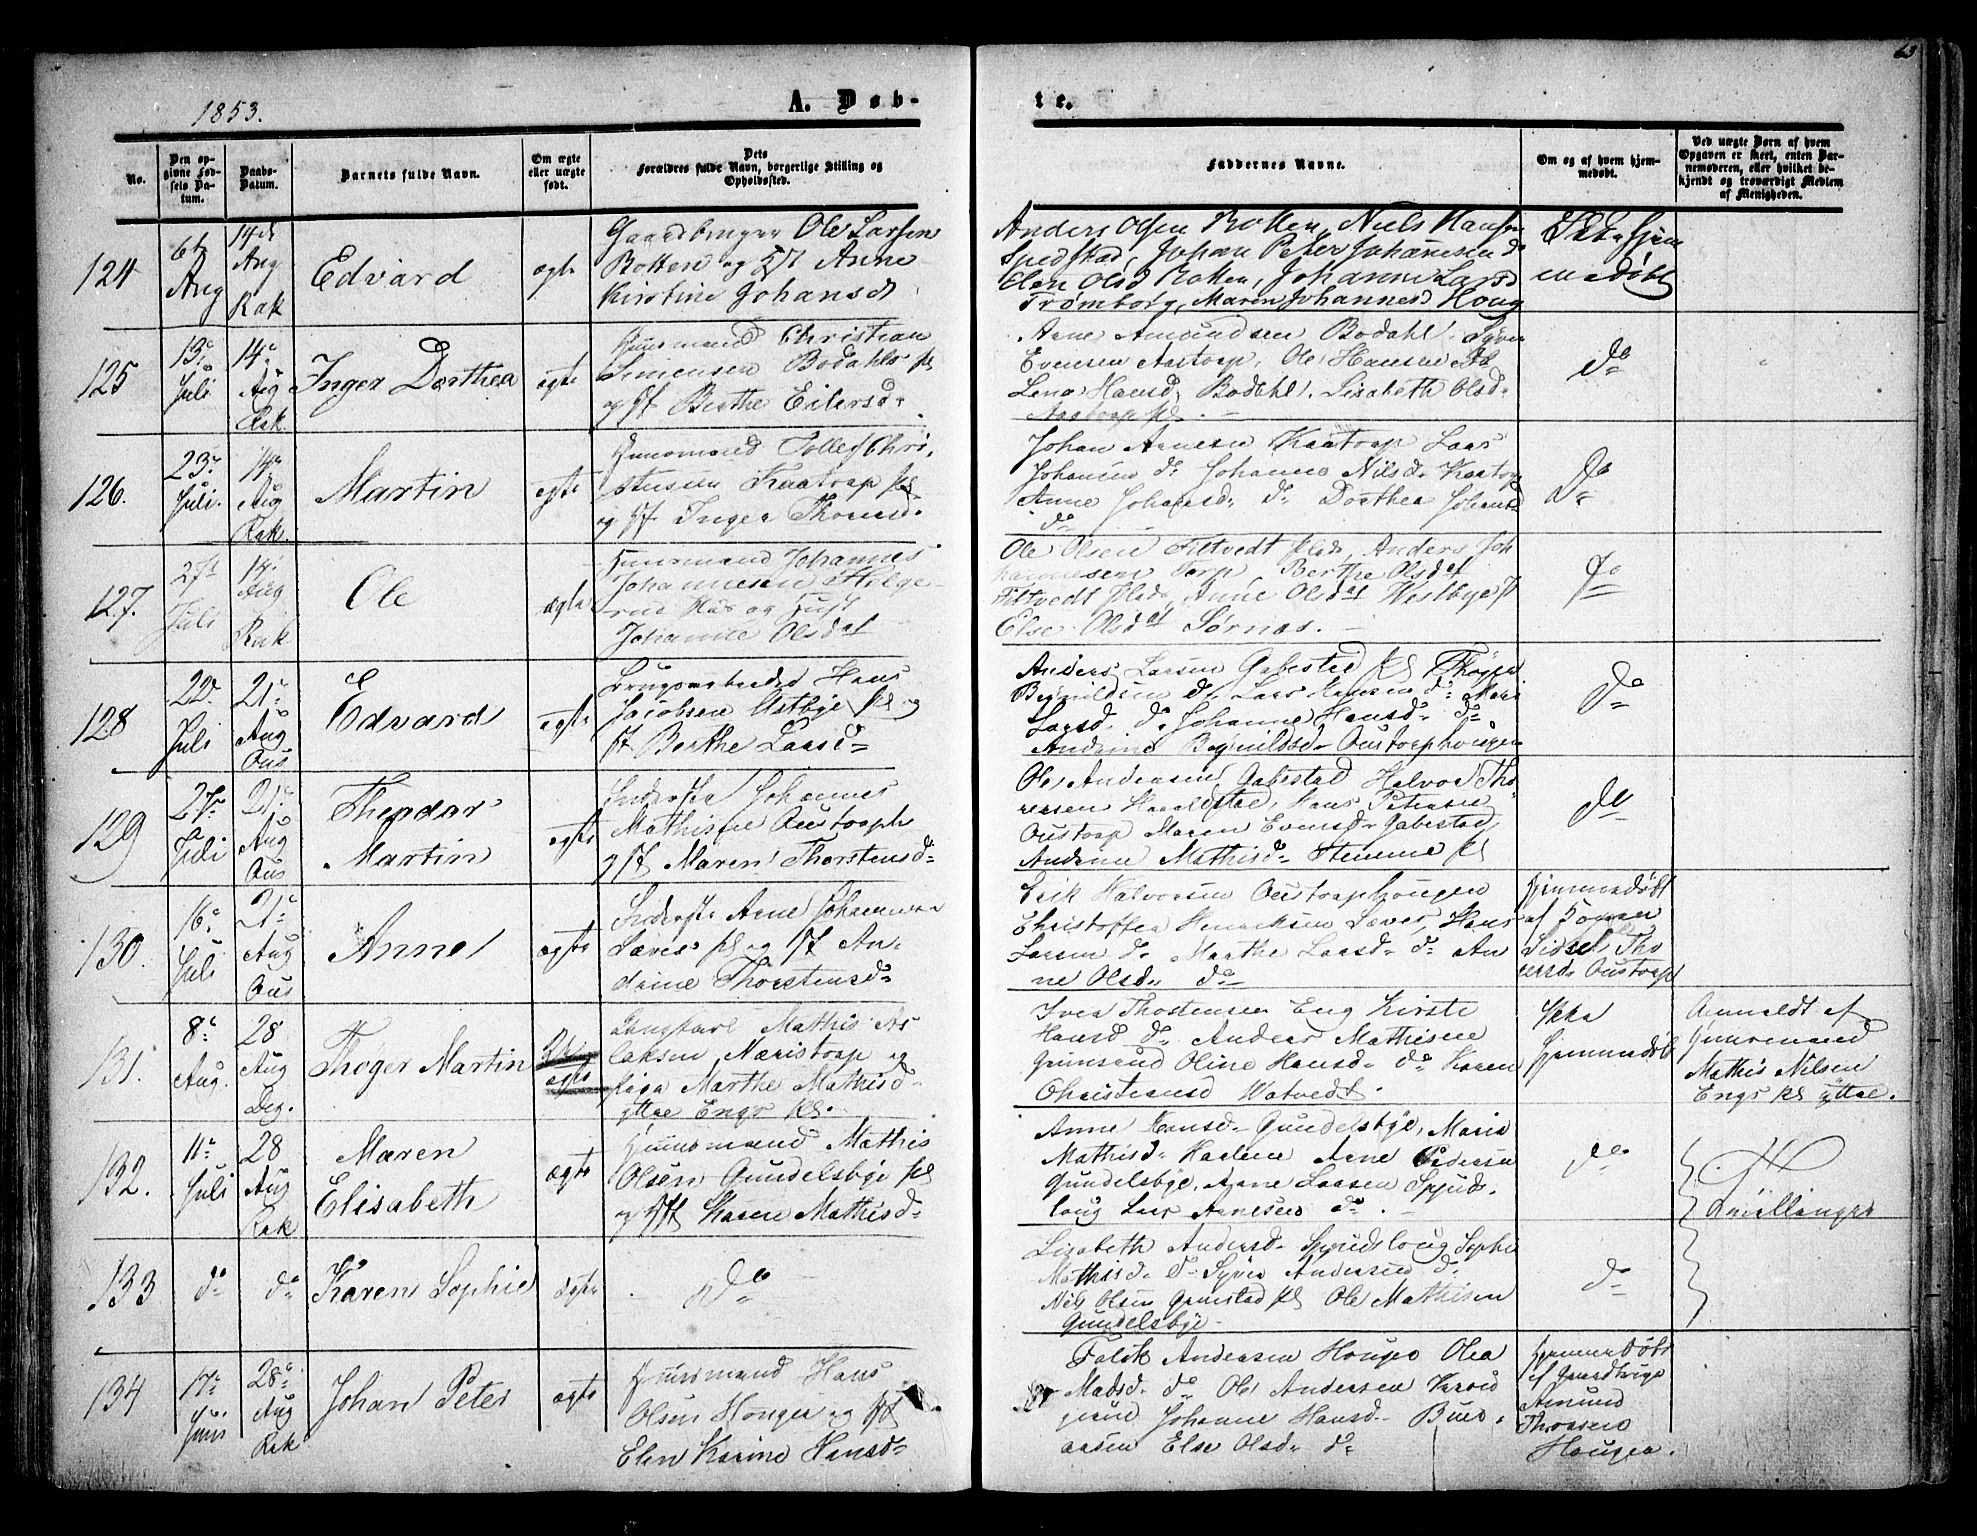 63
1853.
A. Døb-
te.
No.
Den op-
givne Fød-
sels Da-
tum.
Daabs-
Datum.
Barnets fulde Navn.
Om ægte
eller uægte
født.
Dets
Forældres fulde Navn, borgerlige Stilling og
Opholdssted.
Faddernes Navne.
Om og af hvem hjem-
medøbt.
Ved uægte Børn af hvem
Opgaven er skeet, enten Bar-
nemoderen, eller hvilket be-
kjendt og troværdigt Medlem
af Menigheden.
124
6t
Aug
14de
Aug
Rak
Edvard
ægte
Gaardbruger Ole Larsen
Rotten og Kjst Anne
Kirstine Johansdt
Anders Olsen Rotten, Niels Hansen
Spydstad, Johan Peter Johannesen do
Elen Olsd Rotten, Johanne Larsd
Trømborg, Maren Johannesd Houg
Ikke hjem
medøbt
125
13de
Juli
14de
Aug
Rak
Inger Dorthea
ægte
Huusmand Christian
Simensen Bodahls pl
og Kst Berthe Eilersd.
Arne Amundsen Bodahl. Syver
Evensen Aastorp. Ole Hansen
Lena Hansd. Bodahl. Lisabeth Olsd.
Aastorp pl.
do
126.
23de
Juli.
14de
Aug
Rak.
Martin
ægte
Huusmand Tollef Chri
stensen Kaatorp pl
og Kst Inger Thoresd.
Johan Arnesen Kaatorp Lars
Johansen do Johanne Nilsd. Kaatorp
Anne Johansd. do Dorthea Johansd
do
do
127.
27de
Juli
14de
Aug
Rak
Ole
ægte
Huusmand Johannes
Johannesen Holge
rud Plds og Kust
Johanne Olsdat
Ole Olsen Filtvedt plds, Anders Joh
hannesen Torp Berthe Olsdat
Filtvedt plds, Anne Olsdat Westbye pl
Else Olsdat Sørnas.
do
128
22de
Juli
21de
Aug
Ous
Edvard
ægte
Brugsarbeider Hans
Jacobsen Østbye pl og
Kst Berthe Larsd
Anders Larsen Gabestad pl Thøger
Bernildsen do Lars Hansen do Mari
Larsd. do Johanne Hansd. do
Andrine Bernildsd. Oustorphougen
do
129
27de
Juli
21de
Aug
Ous
Theodor
Martin
ægte
Inderste Johannes
Mathisen Oustorph
og Kst Maren Thorstensd.
Ole Andersen Gabestad Halvor Tho
resen Haraldstad, Hans Petersen
Oustorp Maren Evensd. Gabestad,
Andrine Mathisd. Stemme pl
do
130.
16de
Juli
21de
Aug
Ous
Anne
ægte
Inderste Arne Johannesen
Sæves pl og Kst An
drine Thorstensd.
Erik Halvorsen Oustorphougen
Christoffer Henriksen Sæver, Hans
Larsen do Marthe Larsd. do An
ne Olsd. do
Hjemmedøbt
af
Sidsel Tho
resd. Oustorp
131.
8de
Aug.
28
Aug
Deg.
Thøger Martin
ægte
Ungkarl Mathis As
laksen Næristorp og
Pige Marthe Mathisd.
yttre Engs pl.
Iver Thostensen Eng Kirste
Hansd do Anders Mathisen
Grimsrud Oline Hansd. do Karen
Christiansd Watvedt.
Ikke
Hjemmedøbt
Anmeldt af
Huusmand
Mathis Nilsen
Engs pl yttre.
132.
11de
Juli
28
Aug
Rak
Maren
Elisabeth
ægte
Huusmand Mathis
Olsen Gundelsbye pl
og Kst Karen Mathisd.
Anne Hansd. Gundelsbye, Maris
Mathisd. Haslene Arne Pedersen
Gundelsbye, Arne Larsen Spyds
loug Lars Arnesen do.
do
Tvillinger
133
do
do
Karen Sophie
ægte
do
Lisabeth Andersd. Spydsloug Sophi
Mathisd. do Syver Andersen do
Nils Olsen Grimstad pl Ole Mathisen
Gundelsbye.
do
134
17de
Juni
28de
Aug
Rak
Johan Peter
ægte
Huusmand Hans
Olsen Houger og Kst
Elen Karine Hansd.
Falck Andersen Houger Olea
Madsd. do Ole Andersen
Johanne Hansd.
Else Olsd. do
Hjemmedøbt
af Gaardbruger
Amund
Thoresen
Houger.